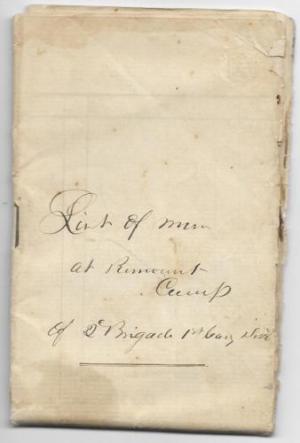 List of men
at Remount
Camp
of 2d Brigade 1st Cavy Div